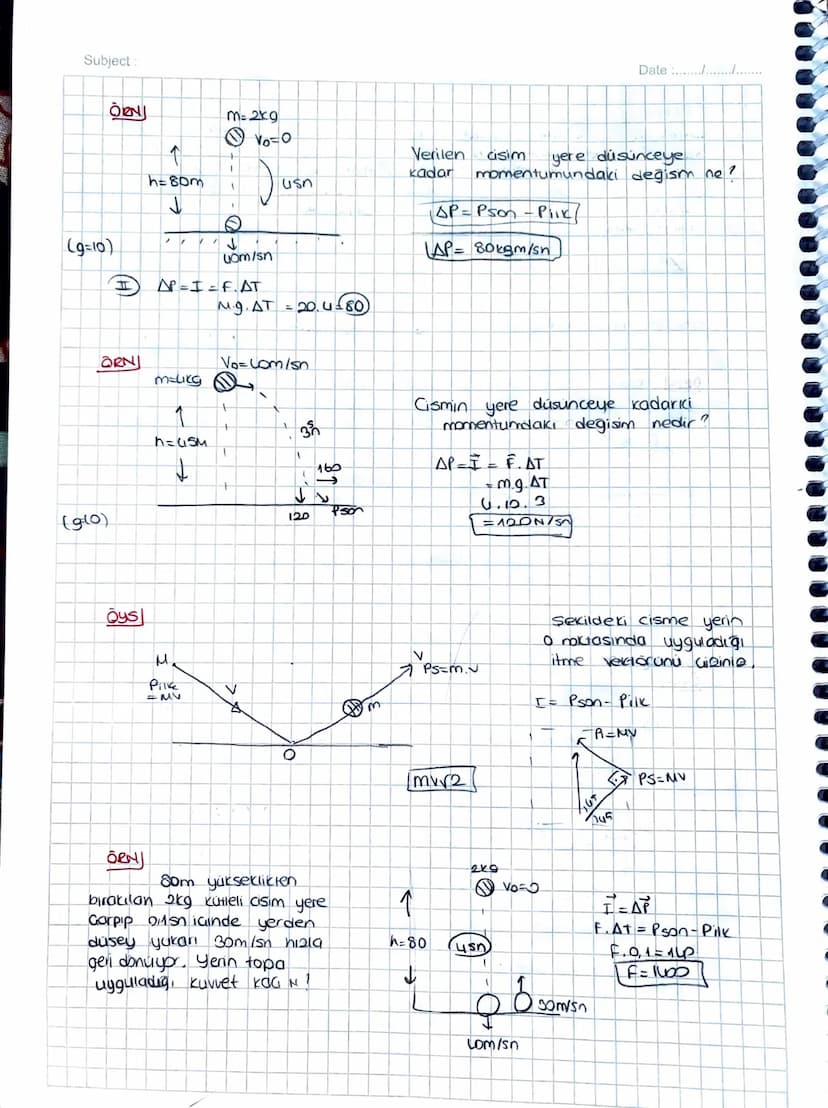 Subject :
Date :......./......./.......
ÖRN
m=2kg
V₀=0
h=80m
4sn
(g=10)
40m/sn
Verilen cisim yere düsünceye
kadar momentumundaki değism ne?
ΔP=Pson-Pilk
ΔP= 80kgm/sn
II ΔP=I=F.ΔT
M.g.ΔT =20.4=80
ÖRN
V₀=40m/sn
m=4kg
h=45M
3sn
160
120 Pson
(g10)
Cismin yere düsunceye kadarki
momentumdaki değisim nedir?
ΔP=I = F.ΔT
=m.g.ΔT
4.10.3
=120N/sn
ÖYS
M
Pilk
=MV
V
O
m
V
Ps=m.v
mv√2
Sekildeki cisme yerin
O noktasında uyguladığı
itme vektörünü cizinle.
I= Pson-Pilk
Pi=MV
PS=MV
45
45
ÖRN
80m yükseklikten
bırakılan 2kg kütleli cisim yere
Carpıp 0,1sn icinde yerden
düsey yukarı 30m/sn hızla
geri dönüyor. Yerin topa
uyguladığı kuvvet kaç N!
2kg
V₀=0
h=80
4sn
30m/sn
40m/sn
I=ΔP
F.ΔT=Pson-Pilk
F.0,1=140
F=1400